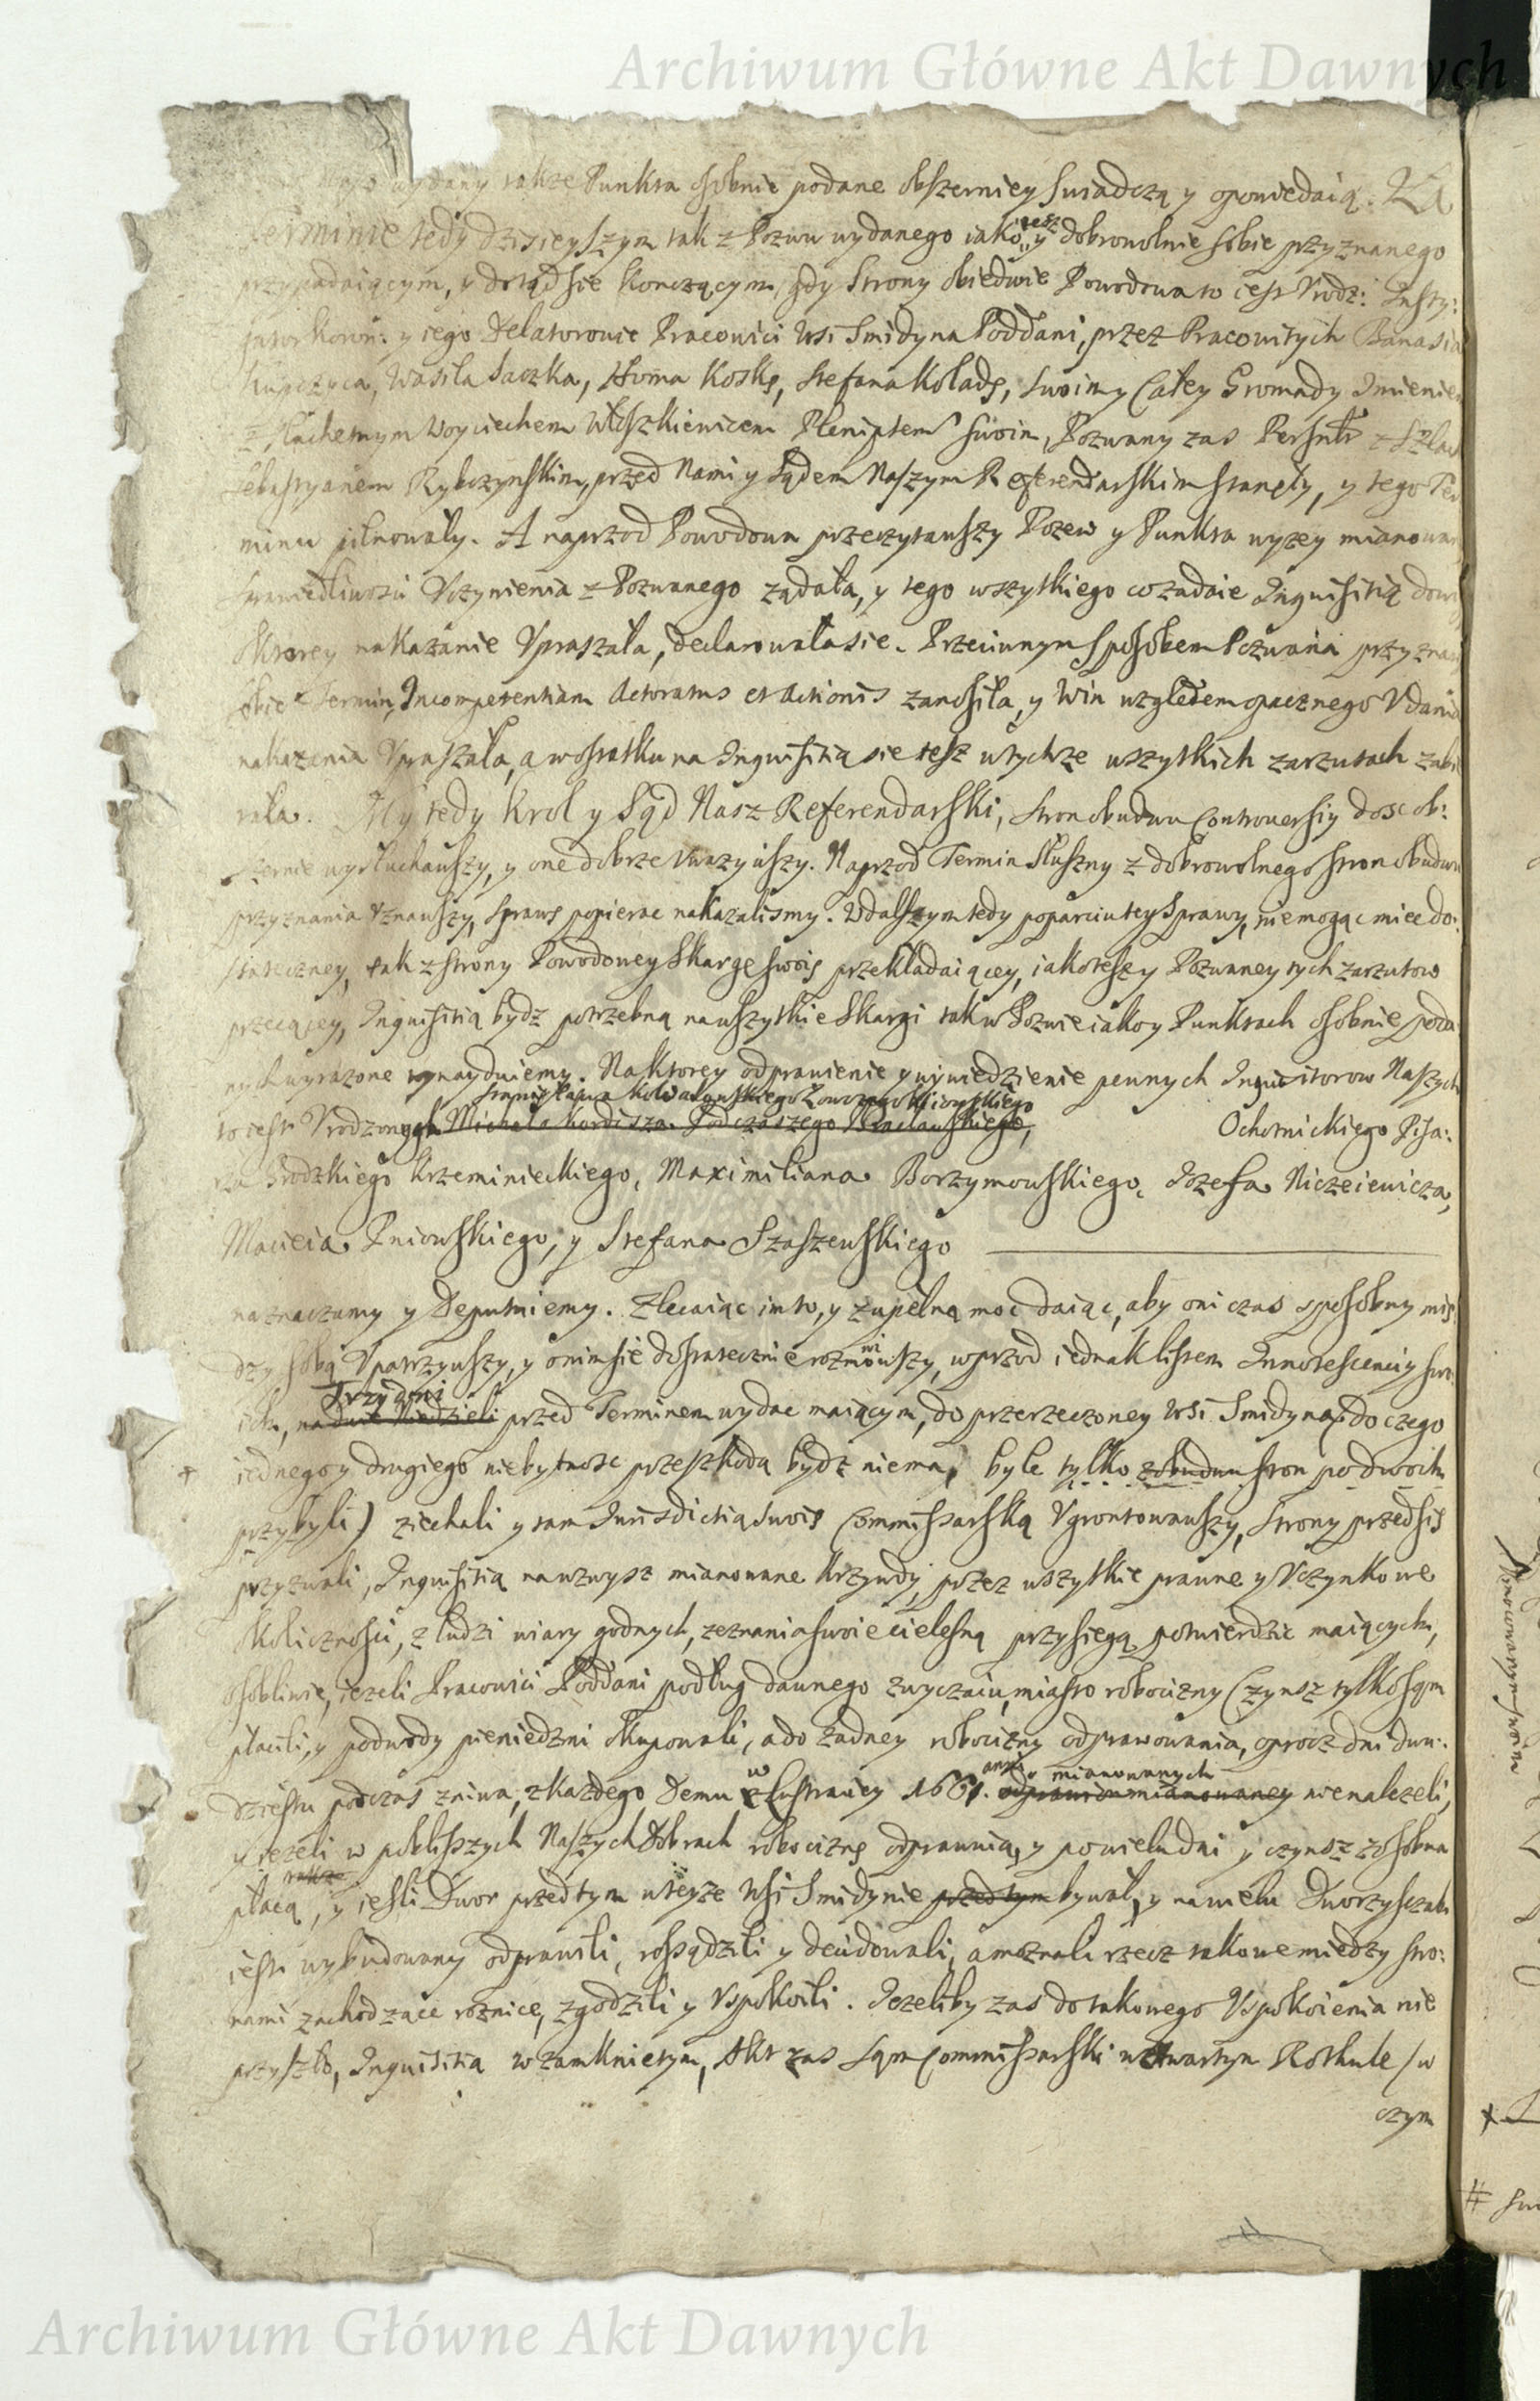 Archiwum Główne Akt Dawnych
wydany takze Punkta osobnie podane obszerniey swiadczą y opowiedaią. Na
Terminie tedy dzisieyszym tak z Pozwu wydanego iako tesz y dobrowolnie sobie przyznanego
przypadaiącym, y dotąd sie konczącym, gdy Strony obiedwie Powodowa to iest Urodz: Insty:
gator Koron: y iego Delatorowie Pracowici Wsi Smidyna Poddani, przez Pracowitych Banasia
Kupczyca, Wasila Saczka, Homa Koskę, Stefana Koladę, swoim y Całey Gromady Imieniem
z Szlachetnym Woyciechem Włoszkiewicem Plenipotem swoim, Pozwany zas Personaliter z Szlach
Sebastyanem Rybczynskim, przed Nami y Sądem Naszym Referendarskim stanęły, y tego Ter
minu pilnowały. A naprzod Powodowa przeczytawszy Pozew y Punkta wyzey mianowane
Sprawiedliwosci Uczynienia z Pozwanego ządała, y tego wszytkiego co zadaie Inquisitią dowiesc
o ktorey nakazanie Upraszała, declarowała sie. Przeciwnym sposobem Pozwana przyznawszy
sobie Termin, Incompetentiam Actoratus et Actionis zanosiła, y Win względem opacznego Udania
nakazania Upraszała, a w ostatku na Inquisitią sie tesz w tychze wszytkich zarzutach zabie
rała. My tedy Krol y Sąd Nasz Referendarski, Stron obudwu Controversiy dosc ob:
szernie wysłuchawszy, y one dobrze Uwazywszy. Naprzod Termin słuszny z dobrowolnego stron obudwu
przyznania Uznawszy, sprawę popierac nakazalismy. W dalszym tedy poparciu tey Sprawy, nie mogąc miec do:
stateczney, tak z strony Powodowey Skargę swoię przekładaiącey, iako tesz y Pozwaney tych zarzutow
przeczącey, Inquisitią bydz potrzebną na wszytkie Skargi tak w Pozwie iako y Punktach osobnie poda
nych wyrazone wynayduiemy. Na ktorey odprawienie y wywiedzienie pewnych Inquisitorow Naszych
Stanisława Kowalewskiego Łowczego Kiiowskiego
to iest Urodzonych Michała Kordysza Podczaszego Bracławskiego, Ochotnickiego Pisa:
rza Grodzkiego Krzeminieckiego, Maximiliana Borzymowskiego, Jozefa Niczeiewicza,
Macieia Pniowskiego, y Stefana Szaszewskiego
naznaczamy y Deputuiemy. Zlecaiąc im to, y zupełną moc daiąc, aby oni czas sposobny mię
dzy sobą Upatrzywszy, y o nim sie dostatecznie rozmowiwszy, wprzod iednak listem Innotescenciy swo
Trzy dni
ich, na dwie Niedzieli przed Terminem wydac maiącym, do przerzeczoney Wsi Smidyna (do czego
+ iednego y drugiego niebytnosc przeszkodą bydz niema, byle tylko z obudwu stron po dwoch
przybyli) ziechali y tam Iurisdictią swoię Commissarską Ugrontowawszy, Strony przed się
przyzwali, Inquisitią na wzwysz mianowane Krzywdy, przez wszytkie prawne y Uczynkowe
okolicznosci, z ludzi wiary godnych, zeznania swoie cielesną przysięgą potwierdzic maiących,
osobliwie, iezeli Pracowici Poddani podług dawnego zwyczaiu, miasto robocizny Czynsz tylko sam
płacili, y podwody pieniedzmi okupowali, a do zadney robocizny odprawowania, oprocz dni dwu:
dziestu podczas zniwa, z kazdego Domu w Lustraciey 1661. anno mianowanych odprawienia mianowaney nienalezeli,
y iezeli w poblisszych Naszych Dobrach robociznę odprawuią, y po wielu dni y czynsz z osobna
takze
płacą, y iesli Dwor przedtym w teyze Wsi Smidynie przedtym bywał, y na wielu Dworzyscach
iest wybudowany odprawili, rossądzili y decidowali, a moznali rzecz takowe miedzy stro:
nami zachodzące roznice, zgodzili y Uspokoili. Iezeliby zas do takowego Uspokoienia nie
przyszło, Inquisitią w zamknietym, Akt zas sam Commissarski w otwartym Rothule /w
czym
Archiwum Główne Akt Dawnych